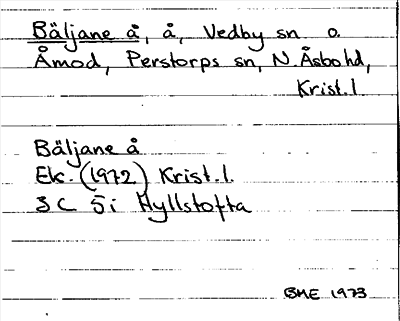 Bäljane å, å, Vedby sn o.
Åmod, Perstorps sn, N. Åsbo hd,
Krist. l
Bäljane å
Ek. (1972) Krist. l.
3 C 5i Hyllstofta
GME 1973